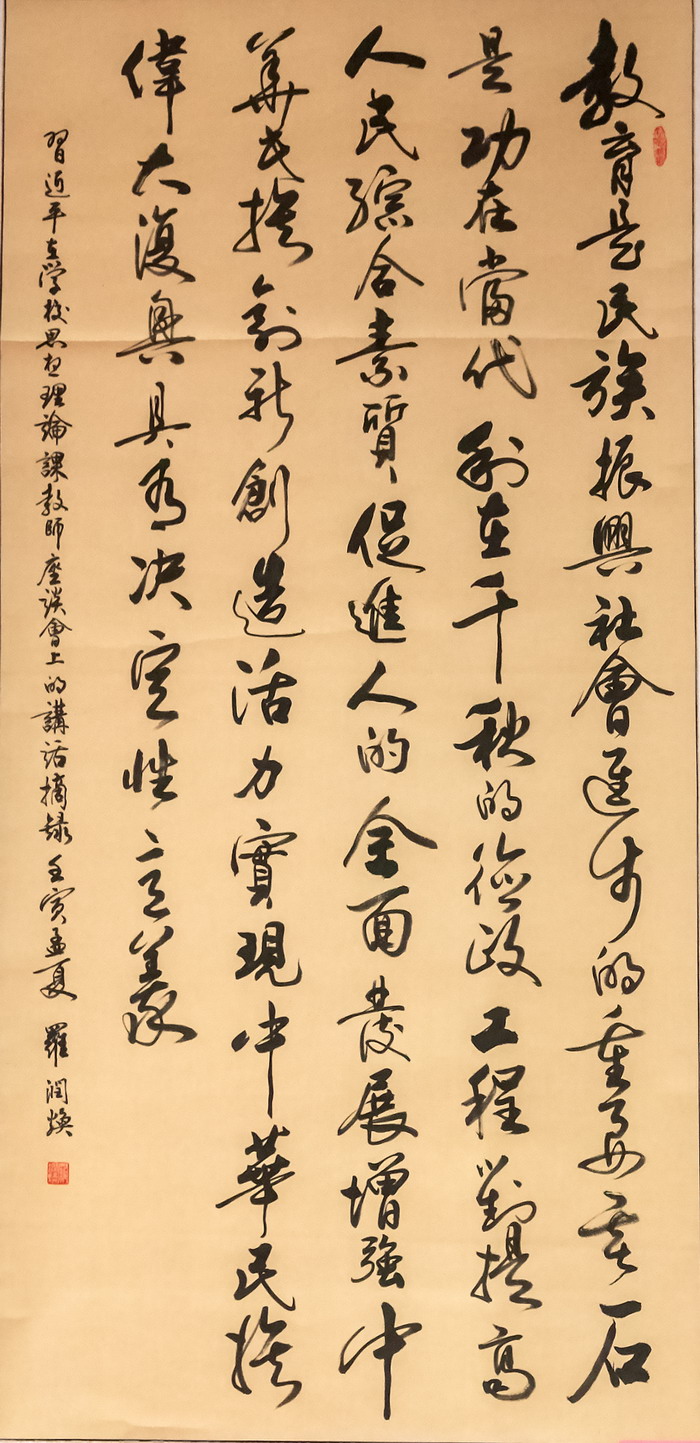 教育是民族振興社會進步的重要基石
是功在當代利在千秋的德政工程對提高
人民綜合素質促進人的全面發展增強中
華民族創新創造活力實現中華民族
偉大復興具有決定性意義
習近平在学校思想理論課教師座談會上的講話摘錄壬寅孟夏 羅潤煥